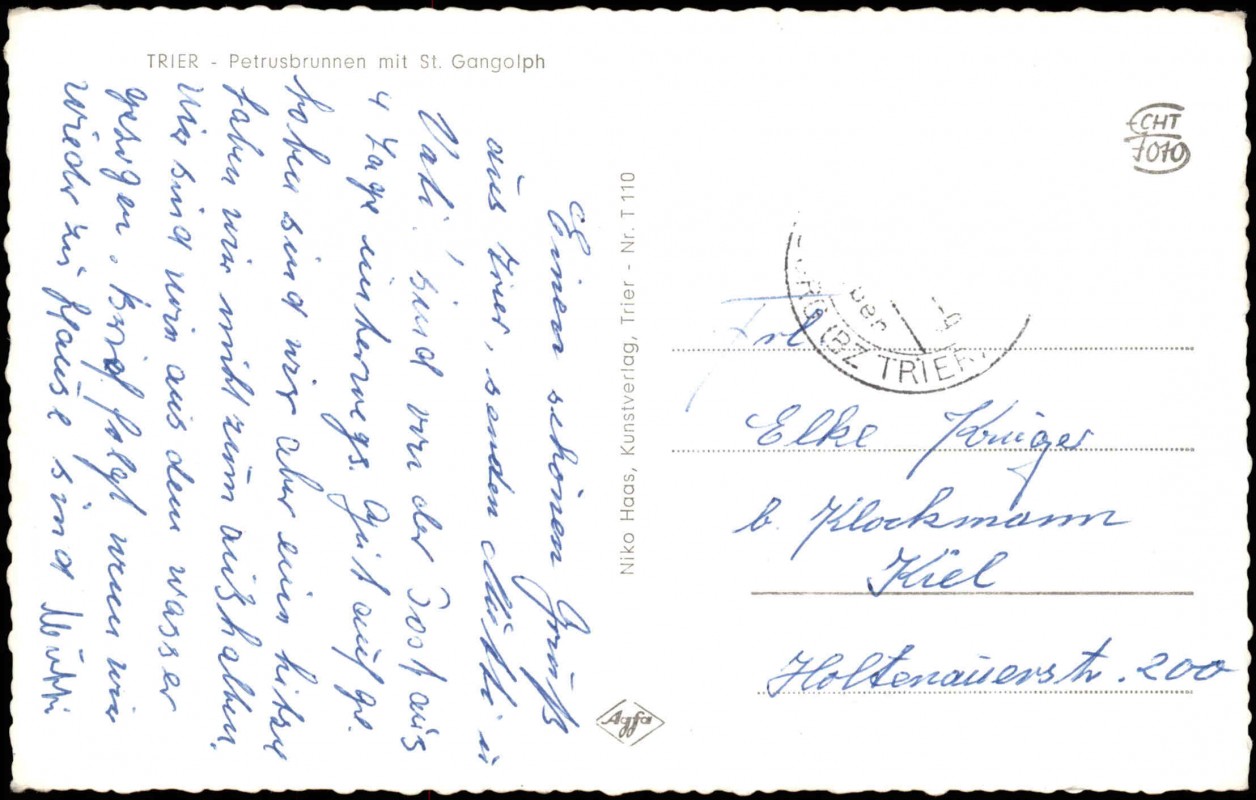 TRIER - Petrusbrunnen mit St. Gangolph
Einen schönen Gruß
aus Trier, senden Mutti u
Vati! sind von der Post aus
4 Tage unterwegs. Gut auf ge.
hoben sind wir aber ein hitze
haben wir nicht zum aushalten.
Wir sind nur aus dem wasser
gezogen. Brief folgt wenn wir
wieder zu Hause sind Mutti
Niko Haas, Kunstverlag, Trier - Nr. T 110
Agfa
ECHT
FOTO
(BZ TRIER)
Frl
Elke Krüger
b. Klockmann
Kiel
Holtenauerstr. 200